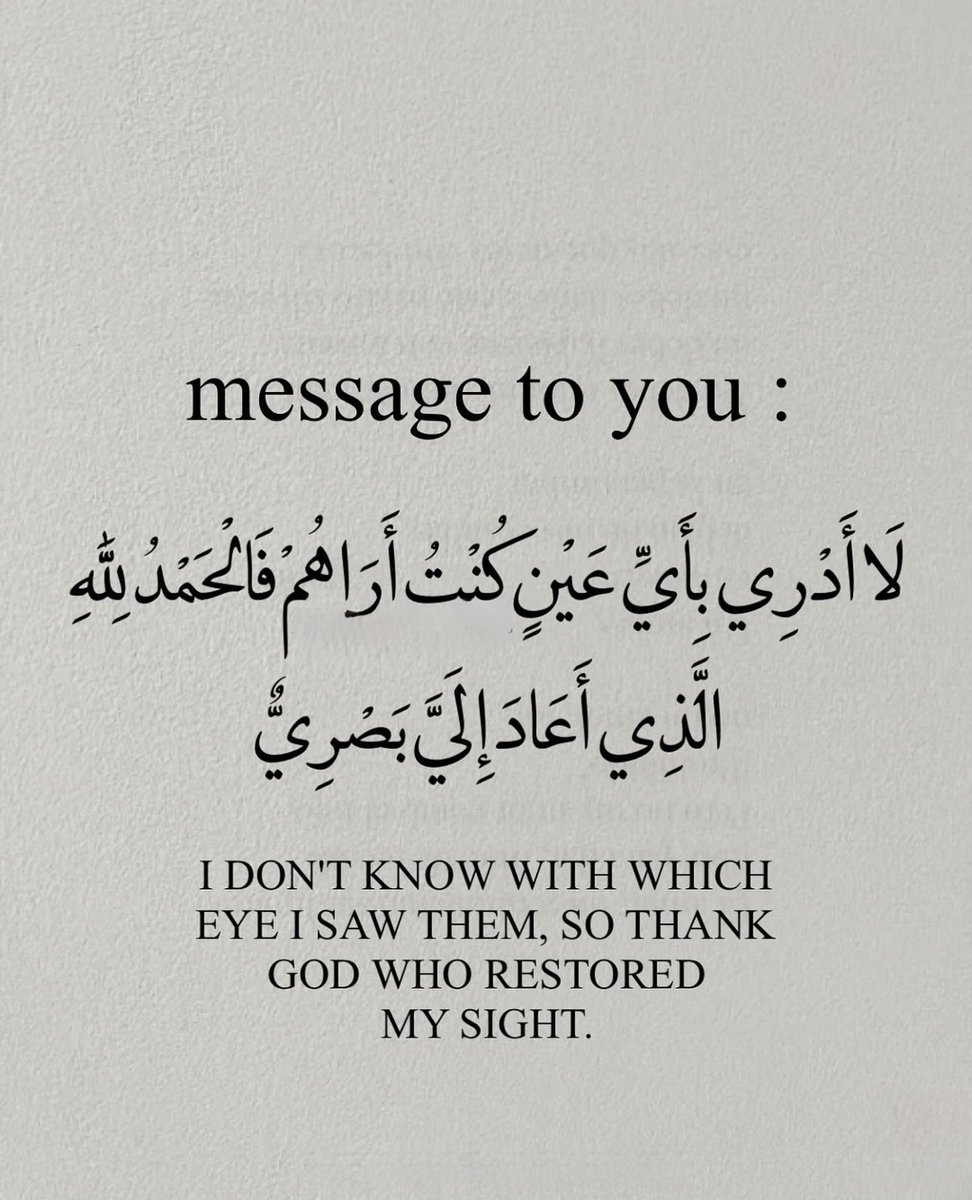 message to you :
لَا أَدْرِي بِأَيِّ عَيْنٍ كُنْتُ أَرَاهُمْ فَالْحَمْدُ لِلّٰهِ
الَّذِي أَعَادَ إِلَيَّ بَصْرِيٌّ
I DON'T KNOW WITH WHICH
EYE I SAW THEM, SO THANK
GOD WHO RESTORED
MY SIGHT.